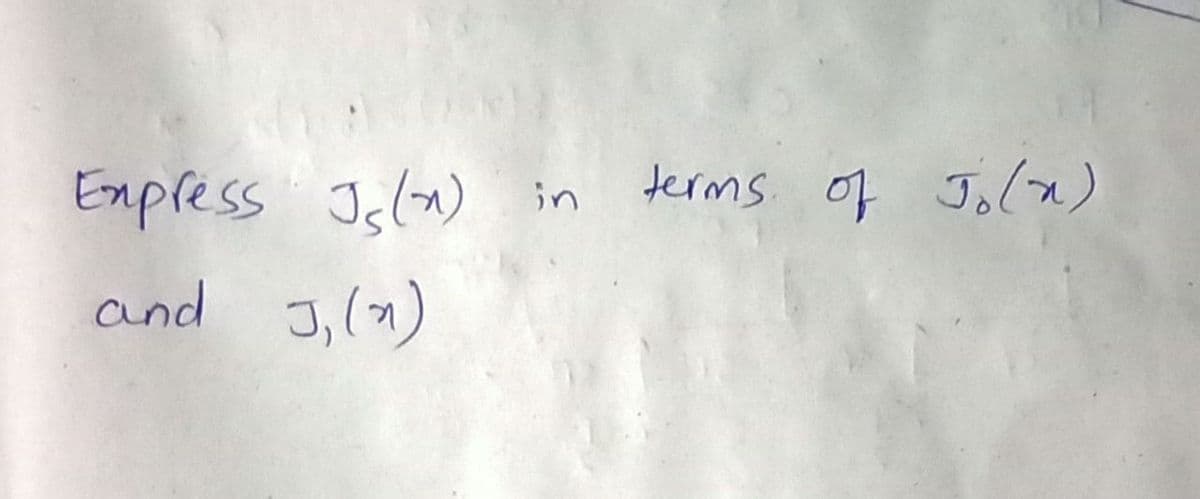 Express J₅(x) in terms of J₀(x)
and J₁(x)